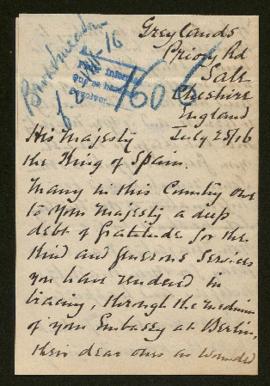 Greylands
Priory Rd
Sale
Cheshire
England
July 25/16
His Majesty
the King of Spain.
Many in this Country owe
to Your Majesty a deep
debt of gratitude for the
kind and generous services
you have rendered in
tracing, through the medium
of your Embassy at Berlin,
their dear ones as wounded